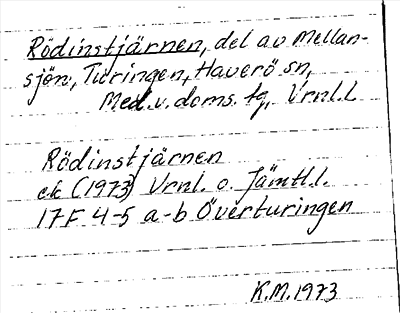 Rödinstjärnen, del av Mellan-
sjön, Turingen, Haverö sn,
Med. v. doms. tg, Vrnl. L
Rödinstjärnen
ek (1973) Vrnl. o. Jämtl.l.
17F 4-5 a-b Överturingen
K.M. 1973